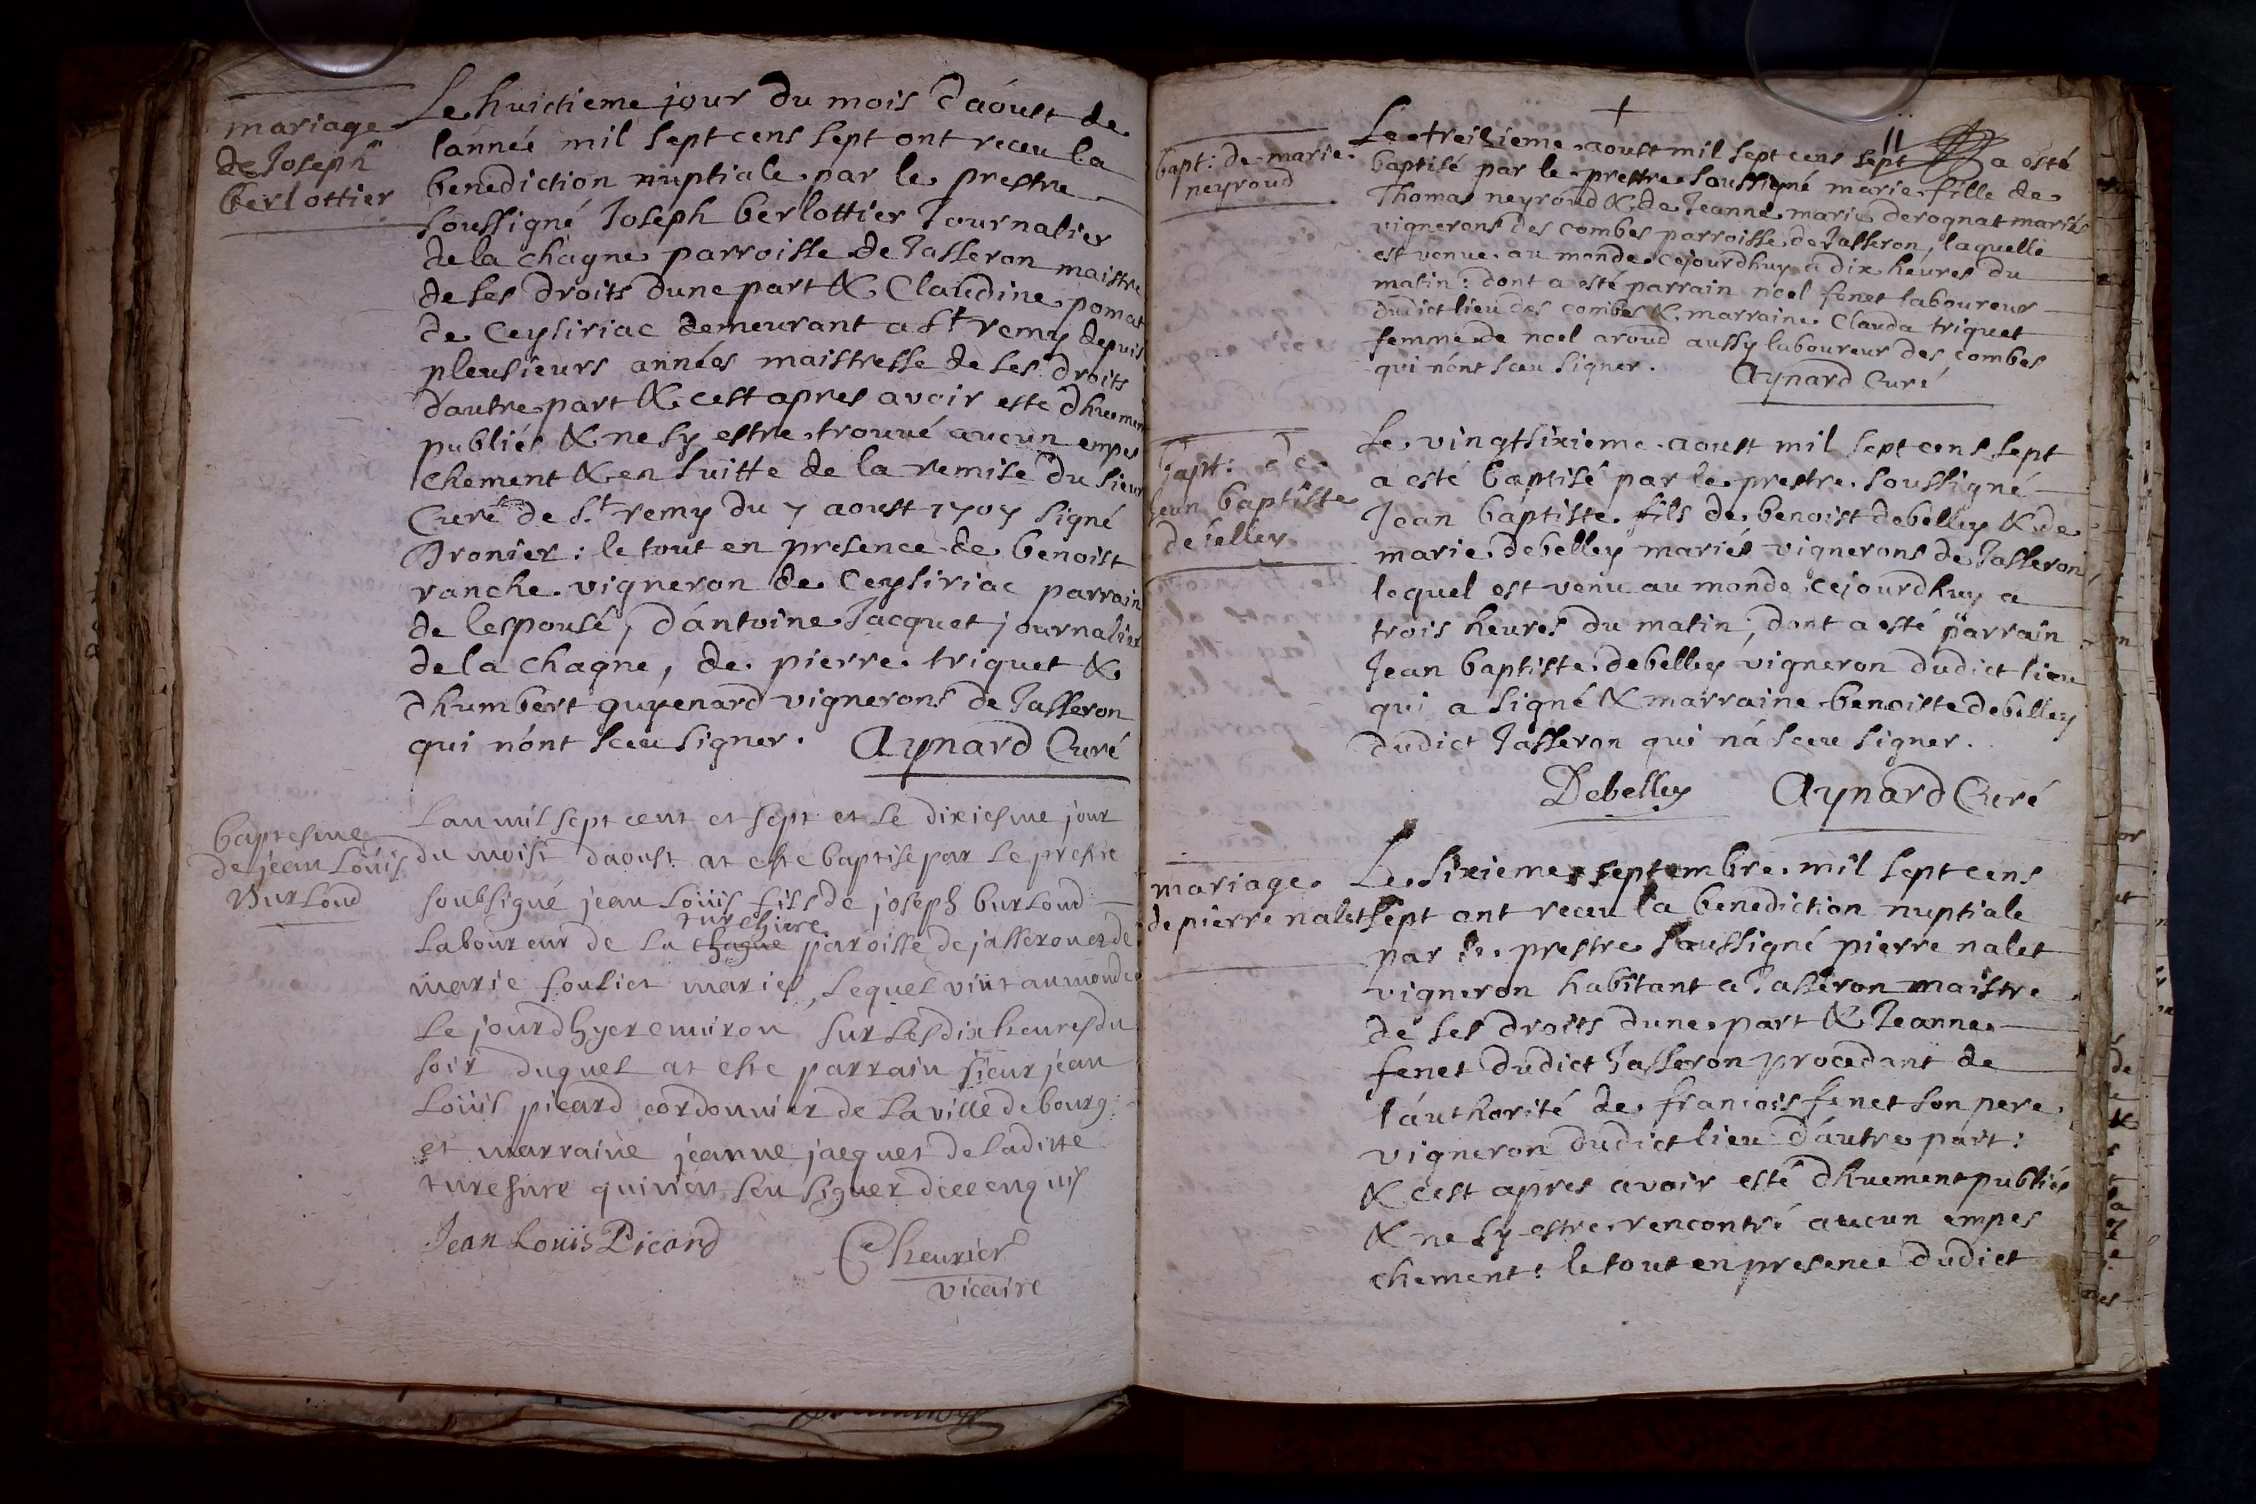 mariage
de Joseph
berlottier
Le huictieme jour du mois d'aoust de
l'année mil sept cens sept ont receu la
benediction nuptiale par le prestre
soussigné Joseph berlottier Journalier
de la chagne parroisse de Jasseron maistre
de ses droits dune part & Claudine pomat
de Ceysiriac demeurant a St remy depuis
pleusieurs années maistresse de ses droits
d'autre part & cest apres avoir esté dhuemen
publiés & ne sy estre trouvé aucun empes
chement & en suitte de la remise du sieur
Curé de St remy du 7 aoust 1707 signé
Dronier : le tout en presence de benoist
ranche vigneron de Ceysiriac parrain
de lespousé, d'antoine Jacquet journalier
de la chagne, de pierre triquet &
dhumbert guyenard vignerons de Jasseron
qui n'ont sceu signer. Aynard Curé
baptesme
de jean Loüis
Burloud
Lan mil sept cent et sept et le dixiesme jour
du moist daoust at este baptise par le prestre
soubsigné jean Loüis fils de joseph burloud
turchiere
Laboureur de la chagne paroisse de jasseron et de
marie soulier mariés, Lequel vint au monde
Le jourdhyer environ sur Les dix heures du
soir duquel at este parrain sieur jean
Loüis picard cordonnier de La ville de bourg
et marraine jeanne jacquet de Laditte
qui seu signer
Jean Louis Picard Cheurier
vicaire
11
bapt: de marie
neyroud
Le treizieme aoust mil sept cens sept a esté
baptisé par le prestre soussigné marie fille de
Thomas neyroud & de Jeanne marie derognat mariés
vignerons des combes parroisse de Jasseron, laquelle
est venue au monde cejourdhuy a dix heures du
matin: dont a esté parrain noel fenet laboureur
dudict lieu des combes & marraine Clauda triquet
femme de noel aroud aussy laboureur des combes
qui n'ont sceu signer. Aynard Curé
bapt: de
Jean baptiste
debelley
Le vingtsixieme aoust mil sept cens sept
a esté baptisé par le prestre soussigné
Jean baptiste fils de benoist debelley & de
marie debelley mariés vignerons de Jasseron,
lequel est venu au monde cejourdhuy a
trois heures du matin; dont a esté parrain
Jean baptiste debelley vigneron dudict lieu
qui a signé & marraine benoiste debelley
dudict Jasseron qui n'a sceu signer.
Debelley Aynard Curé
mariage
de pierre nalet
Le sixieme septembre mil sept cens
sept ont receu la benediction nuptiale
par le prestre soussigné pierre nalet
vigneron habitant a Jasseron maistre
de ses droits dune part & Jeanne
fenet dudict Jasseron procedant de
l'authorité de francois fenet son pere
vigneron dudict lieu d'autre part:
& cest apres avoir esté dhuement publiés
& ne sy estre rencontré aucun empes
chement: le tout en presence dudict